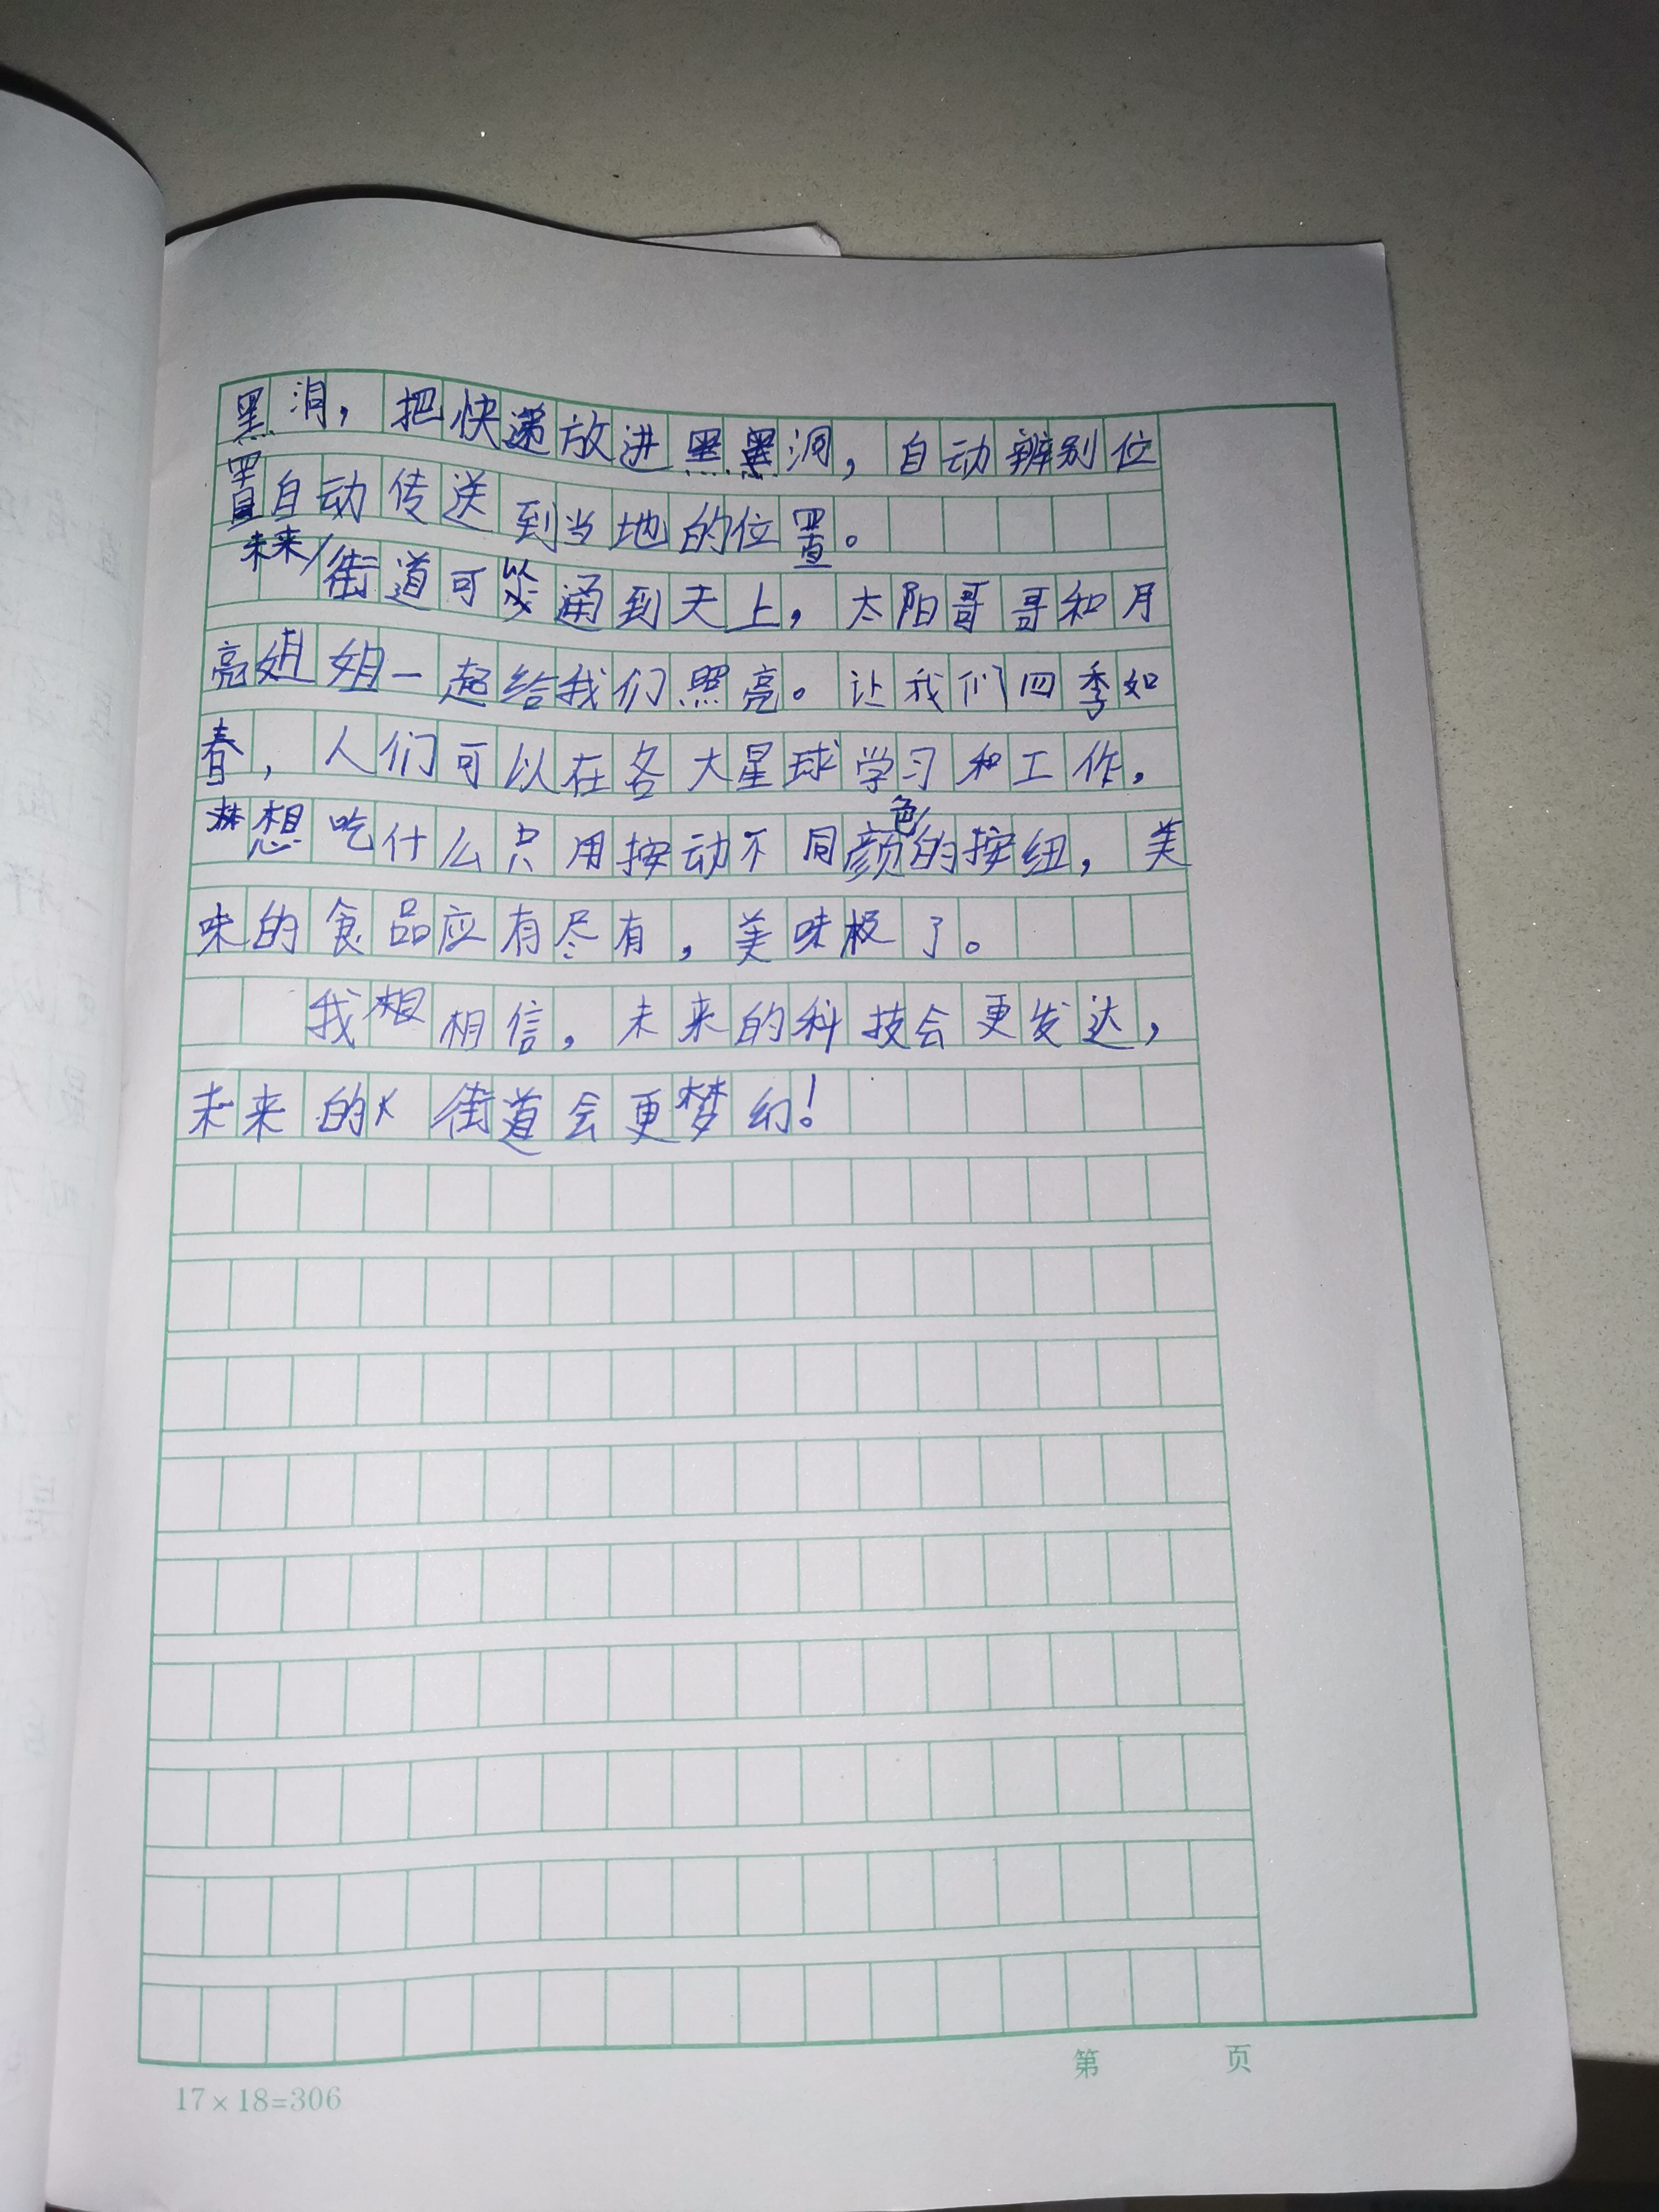 黑洞，把快递放进黑洞，自动辨别位
置自动传送到当地的位置。
未来街道可以通到天上，太阳哥哥和月
亮姐姐一起给我们照亮。让我们四季如
春，人们可以在各大星球学习和工作。
想吃什么只用按动不同颜色的按纽，美
味的食品应有尽有，美味极了。
我相信，未来的科技会更发达，
未来的街道会更梦幻！
第 页
17×18=306